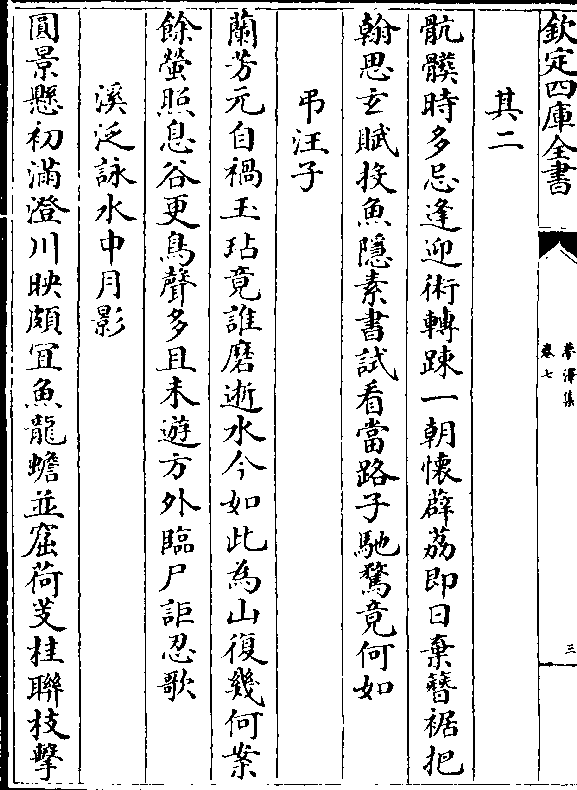 欽定四庫全書
夢澤集
卷七
三
其二
骯髒時多忌逢迎術轉踈一朝懷薜荔即日棄簪裾把
翰思玄賦投魚隱素書試看當路子馳騖竟何如
弔汪子
蘭芳元自禍玉玷竟誰磨逝水今如此為山復幾何案
餘螢照息谷更鳥聲多且未遊方外臨尸詎忍歌
溪泛詠水中月影
圓景懸初滿澄川映頗宜魚龍蟾並窟荷芰桂聯枝擊